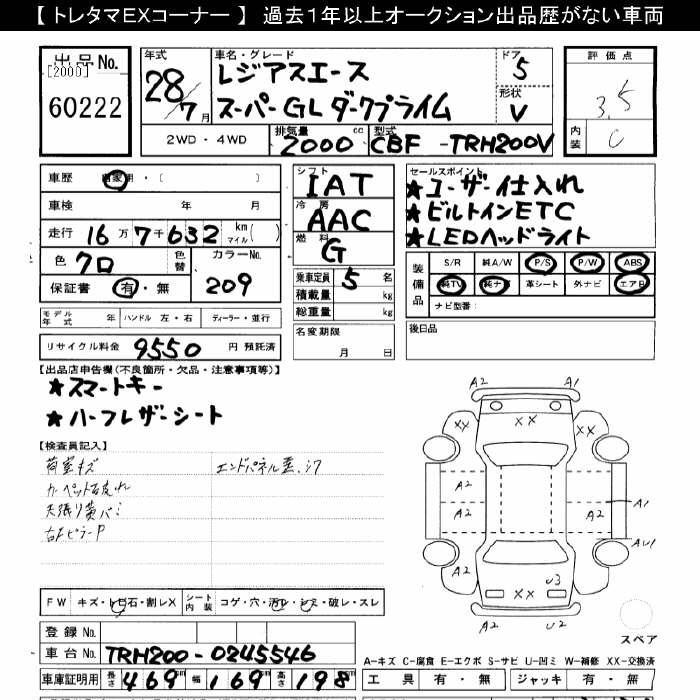 【 トレタマEXコーナー 】 過去1年以上オークション出品歴がない車両
出品No.
[2000]
60222
年式
28/7月
車名・グレード
レジアスエース
スーパーGL ダークプライム
ドア
5
形状
V
2WD・4WD
排気量
2000cc
型式
CBF -TRH200V
評価点
3.5
内装
C
車歴 自家用・〔 〕
車検 年 月
走行 16万7千632 km マイル ( )
色 クロ
色替
カラーNo.
209
保証書 有・無
シフト
IAT
冷房
AAC
燃料
G
乗車定員 5 名
積載量 kg
総重量 kg
名変期限
月 日
セールスポイント
★ユーザー仕入れ
★ビルトインETC
★LEDヘッドライト
装備品
S/R 純A/W P/S P/W ABS
純TV 純ナビ 革シート 外ナビ エアB
ナビ型番:
後日品
モデル年式 年 ハンドル 左・右 ディーラー・並行
リサイクル料金 9550 円 預託済
【出品店申告欄(不良箇所・欠品・注意事項等)】
★スマートキー
★ハーフレザーシート
【検査員記入】
荷室キズ
エンドパネル
カーペット
天張り
右Fピラー
FW キズ・トビ石・割レX
シート内装 コゲ・穴・汚レ・シミ・破レ・スレ
登録No.
車台No. TRH200-0245546
車庫証明用 長さ 469cm 幅 169cm 高さ 198cm
A2
A1
XX
XX
XX
A2
A2
A2
A1
A2
U3
XX
XX
A2
U2
スペア
A-キズ C-腐食 E-エクボ S-サビ U-凹ミ W-補修 XX-交換済
工具 有・無 ジャッキ 有・無